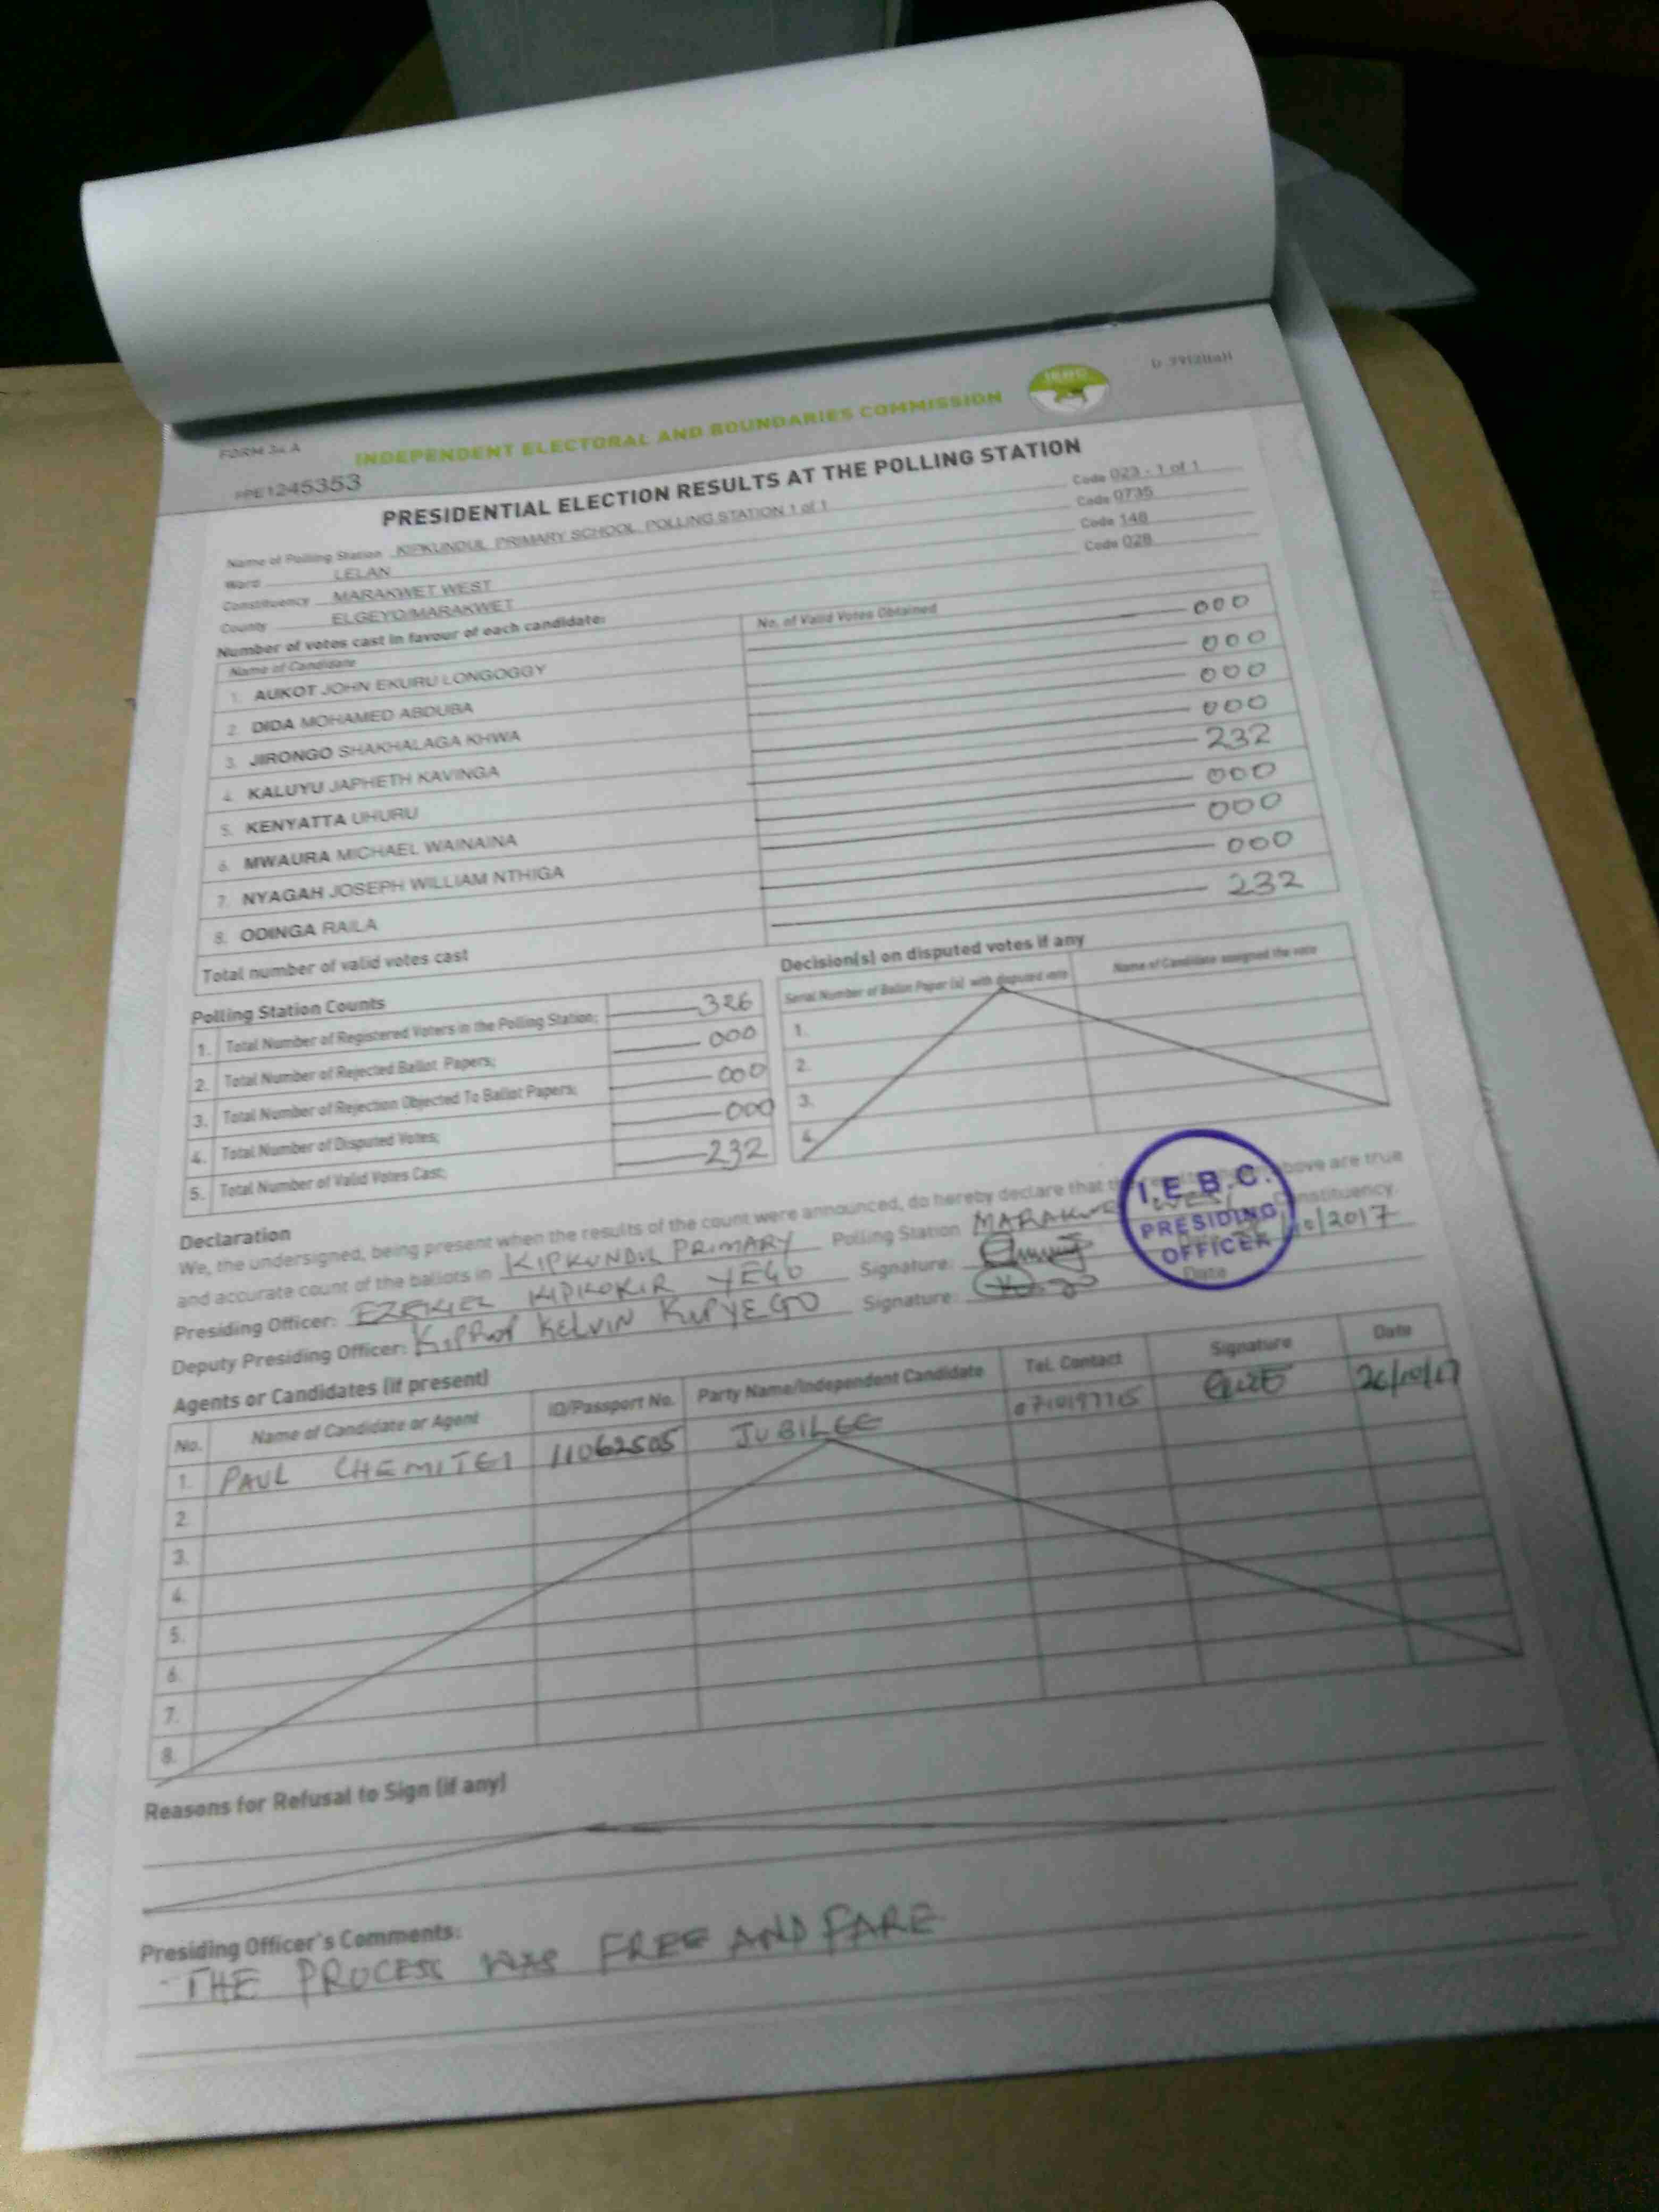 FORM 34 A
INDEPENDENT ELECTORAL AND BOUNDARIES COMMISSION
IEBC
PPE1245353
PRESIDENTIAL ELECTION RESULTS AT THE POLLING STATION
Name of Polling Station KIPKUNDUL PRIMARY SCHOOL POLLING STATION 1 of 1 Code 023 - 1 of 1
Ward LELAN Code 0735
Constituency MARAKWET WEST Code 148
County ELGEYO/MARAKWET Code 028
Number of votes cast in favour of each candidate:
Name of Candidate No. of Valid Votes Obtained
1. AUKOT JOHN EKURU LONGOGGY 000
2. DIDA MOHAMED ABDUBA 000
3. JIRONGO SHAKHALAGA KHWA 000
4. KALUYU JAPHETH KAVINGA 000
5. KENYATTA UHURU 232
6. MWAURA MICHAEL WAINAINA 000
7. NYAGAH JOSEPH WILLIAM NTHIGA 000
8. ODINGA RAILA 000
Total number of valid votes cast 232
Polling Station Counts
1. Total Number of Registered Voters in the Polling Station; 326
2. Total Number of Rejected Ballot Papers; 000
3. Total Number of Rejection Objected To Ballot Papers; 000
4. Total Number of Disputed Votes; 000
5. Total Number of Valid Votes Cast; 232
Decision(s) on disputed votes if any
Serial Number of Ballot Paper (s) with disputed vote Name of Candidate assigned the vote
1.
2.
3.
4.
Declaration
We, the undersigned, being present when the results of the count were announced, do hereby declare that the above are true
and accurate count of the ballots in KIPKUNDUL PRIMARY Polling Station MARAKWET WEST Constituency.
Presiding Officer: EZEKIEL KIPKOKIR YEGO Signature: /10/2017
Deputy Presiding Officer: KIPROP KELVIN KIPYEGO Signature: Date
I.E.B.C.
PRESIDING
OFFICER
Agents or Candidates (if present)
No. Name of Candidate or Agent ID/Passport No. Party Name/Independent Candidate Tel. Contact Signature Date
1. PAUL CHEMITEI 11062505 JUBILEE 0710197715 26/10/17
2.
3.
4.
5.
6.
7.
8.
Reasons for Refusal to Sign (if any)
Presiding Officer's Comments:
THE PROCESS WAS FREE AND FARE